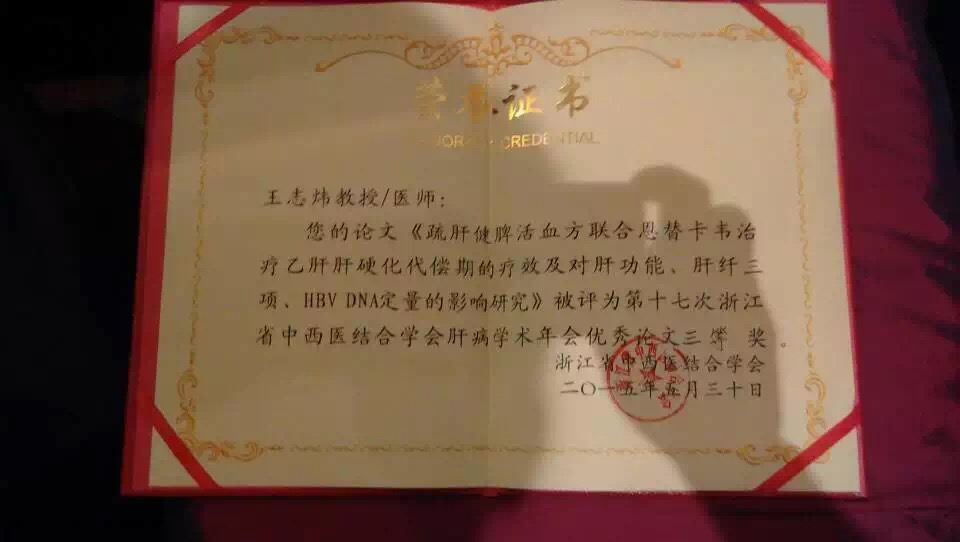 荣誉证书
HONORARY CREDENTIAL
王志炜教授/医师：
您的论文《疏肝健脾活血方联合恩替卡韦治
疗乙肝肝硬化代偿期的疗效及对肝功能、肝纤三
项、HBV DNA定量的影响研究》被评为第十七次浙江
省中西医结合学会肝病学术年会优秀论文三等奖。
浙江省中西医结合学会
二〇一五年五月三十日